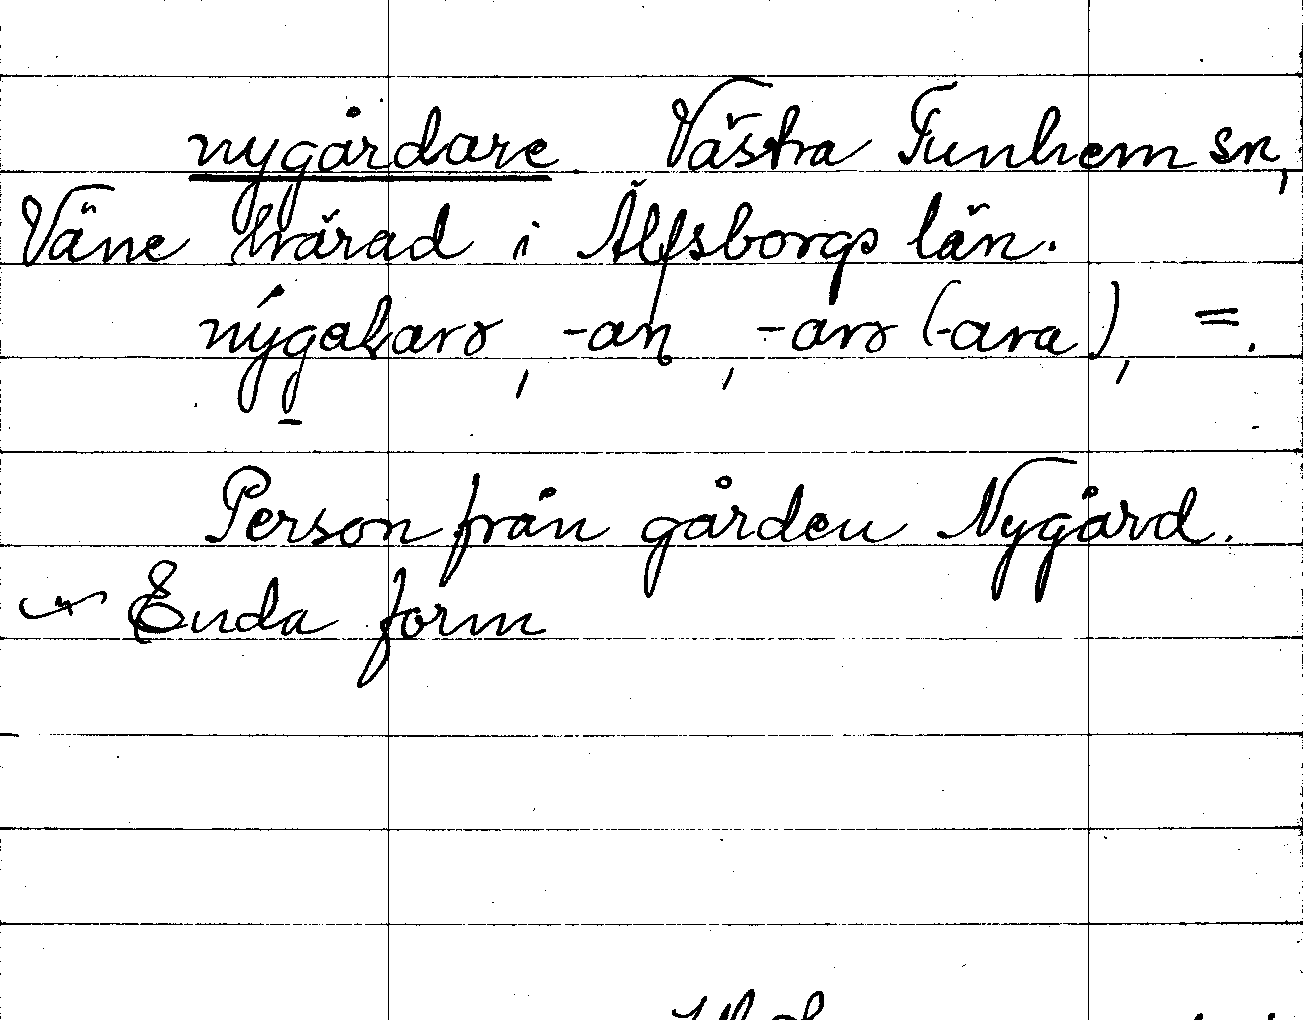 nygårdare Västra Tunhem sn,
Väne härad i Älfsborgs län.
-an, (-ara), =.
Person från gården Nygård.
Enda form